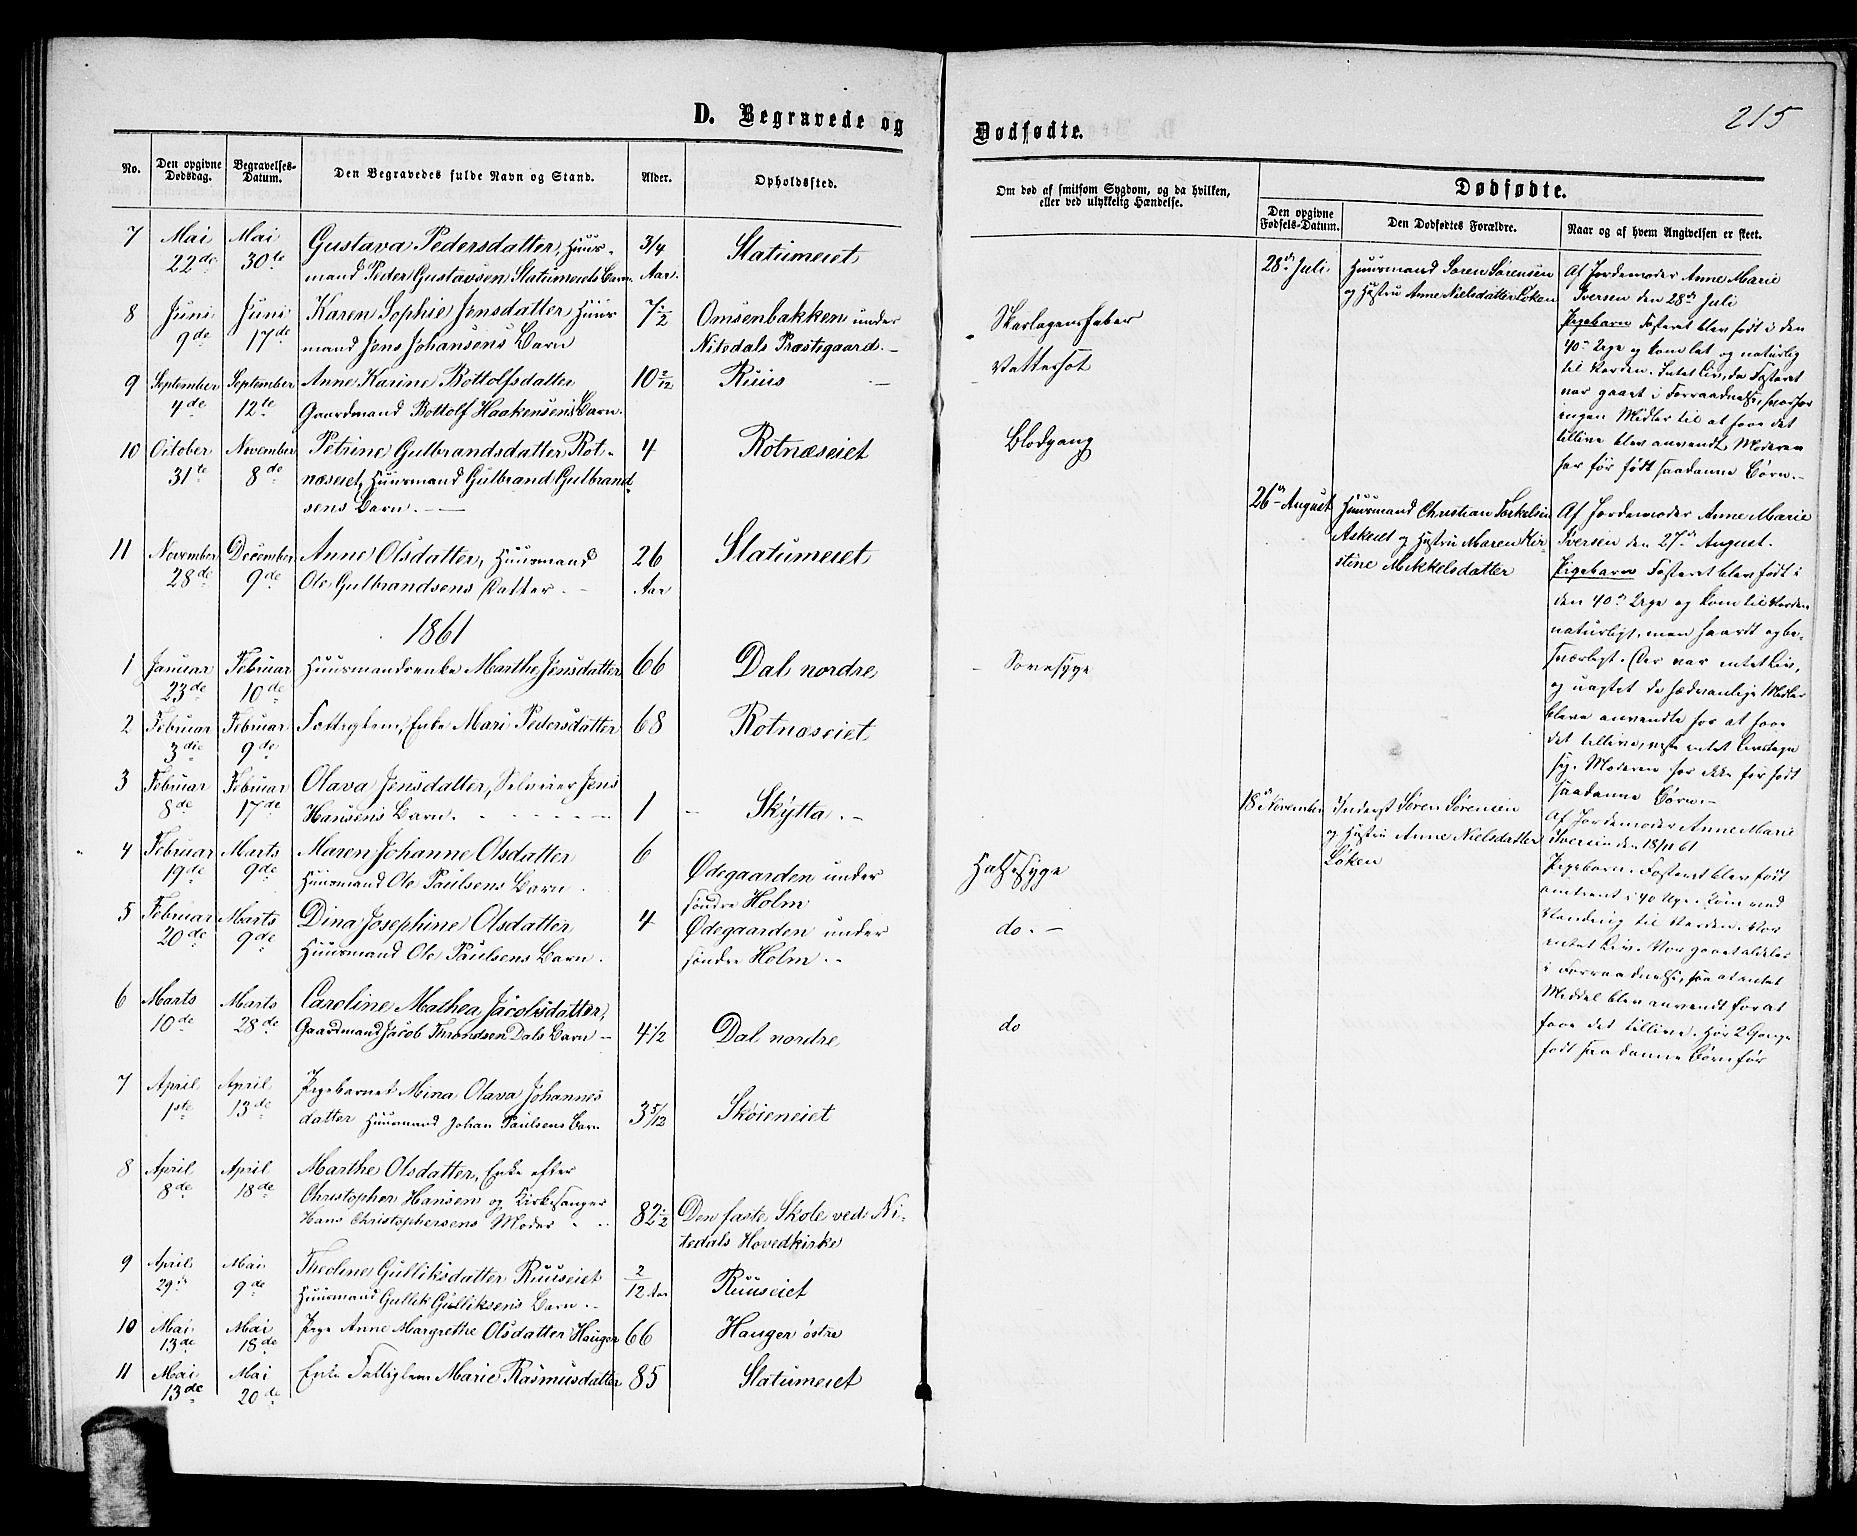 D. Begravede og
Dødfødte.
215
No.
Den opgivne Dødsdag.
Begravelses-Datum.
Den Begravedes fulde Navn og Stand.
Alder.
Opholdsted.
Om død af smitsom Sygdom, og da hvilken,
eller ved ulykkelig Hændelse.
Dødfødte.
Den opgivne Fødsels-Datum.
Den Dødfødtes Forældre.
Naar og af hvem Angivelsen er skeet.
7 Mai Mai Gustava Pedersdatter, Huus- 3/4 Slatumeiet
22de 30te mand Peder Gustavsen Slatumeiets Barn Aar.
8 Juni Juni Karen Sophie Jensdatter Huus 7 1/2 Omsenbakken under Skarlagensfeber
9de 17de mand Jens Johansens Barn Nitedals Præstegaard.
9 September September Anne Karine Bottolfsdatter 10 2/12 Ruus Vattersot
4de 12te Gaardmand Bottolf Haakensens Barn.
10 October November Petrine Gulbrandsdatter Rot- 4 Rotnæseiet Blodgang
31te 8de næseiet, Huusmand Gulbrand Gulbrand-
sens Barn.
11 November December Anne Olsdatter, Huusmand 26 Slatumeiet
28de 9de Ole Gulbrandsens Datter Aar
1861
1 Januar Februar Huusmandsenke Marthe Jensdatter 66 Dal nordre
23de 10de
2 Februar Februar Fattiglem, Enke Mari Pedersdatter 68 Rotnæseiet
3die 9de
3 Februar Februar Olava Jensdatter, Selveier Jens
8de 17de Hansens Barn. 1 Skytta.
4 Februar Marts Maren Johanne Olsdatter 6 Ødegaarden under Halssyge
19de 9de Huusmand Ole Paulsens Barn søndre Holm
5 Februar Marts Dina Josephine Olsdatter 4 Ødegaarden under do.
20de 9de Huusmand Ole Paulsens Barn. søndre Holm
6 Marts Marts Caroline Mathea Jacobsdatter,
10de 28de Gaardmand Jacob Throndsen Dals Barn 4 1/2 Dal nordre do
7 April April Pigebarnet Mina Olava Johannes
1ste 13de datter Huusmand Johan Paulsens Barn 3 5/12 Skøieneiet
8 April April Marthe Olsdatter, Enke efter
8de 18de Christopher Hansen og Kirkesanger
Hans Christophersens Moder 82 1/2 Den faste Skole ved Ni-
tedals Hovedkirke
9 April Mai Theoline Gulliksdatter Ruuseiet 2/12 Aar Ruuseiet
29de 9de Huusmand Gullik Gulliksens Barn
10 Mai Mai Pige Anne Margrethe Olsdatter Hauger 66 Hauger østre
13de 18de
11 Mai Mai Enke Fattiglem Marie Rasmusdatter 85 Slatumeiet
13de 20de
28de Juli Huusmand Søren Sørensen
og Hustru Anne Nielsdatter Løken
Af Jordemoder Anne Marie
Iversen den 28de Juli
Pigebarn Fosteret blev født i den
40de Uge og kom let og naturlig
til Verden. Intet Liv, da Fosteret
var gaaet i Forraadnelse, hvorfor
ingen Midler til at faae det
tillive blev anvendt. Moderen
har før født saadanne Børn.
26de August Huusmand Christian Torkelsen
Askeiet og Hustru Maren Kir-
stine Mikkelsdatter
Af Jordemoder Anne Marie
Iversen den 27de August.
Pigebarn Fosteret blev født i
den 40de Uge og kom til Verden
naturligt, men haardt og be-
sværligt. Der var intet Liv,
og uagtet de sædvanlige Midler
bleve anvendte for at faae
det tillive, intet Livstegn
sig. Moderen har ikke før født
saadanne Børn.
18de November Inderst Søren Sørensen
og Hustru Anne Nielsdatter
Løken
Af Jordemoder Anne Marie
Iversen den 18/11 61
Pigebarn. Fosteret blev født
omtrent i 40 Uge. Kom ved
Vending til Verden. Var
intet Liv. Var gaaet aldeles
i Forraadnelse, saa at intet
Middel blev anvendt for at
faae det tillive. Har 2 Gange
født saadanne Børn før